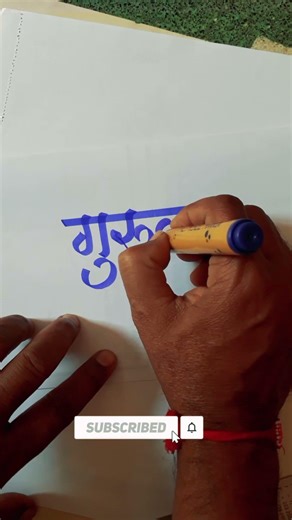 गुरु
SUBSCRIBED